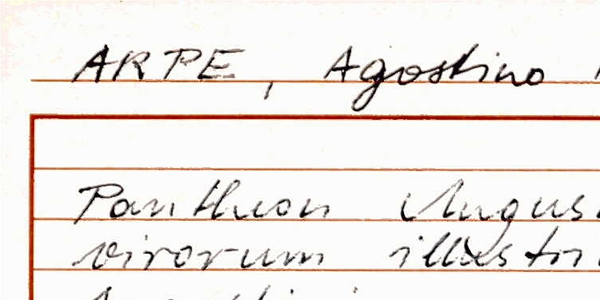 ARPE, Agostino
Pantheon Augus
virorum illustri